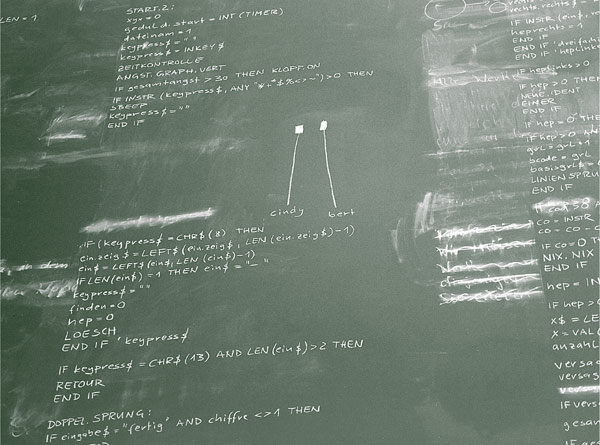 LEN = 1
START.2:
xyz = 0
geduld.start = INT (TIMER)
dateinam = 1
keypress$ = ""
keypress$ = INKEY$
ZEITKONTROLLE
ANGST.GRAPH.VERT
IF gesamtangst > 30 THEN KLOPF.ON
IF INSTR (keypress$, ANY "
) > 0 THEN
SBEEP
keypress$ = ""
END IF
cindy
bert
IF (keypress$ = CHR$ (8) THEN
ein.zeig$ = LEFT$ (ein.zeig$, LEN (ein.zeig$) - 1)
ein$ = LEFT$ (ein$, LEN (ein$) - 1)
IF LEN (ein$) = 1 THEN ein$ = "
keypress$ = ""
finden = 0
hep = 0
LOESCH
END IF ' keypress$
IF keypress$ = CHR$ (13) AND LEN (ein$) > 2 THEN
RETOUR
END IF
DOPPEL.SPRUNG:
IF eingabe$ = "fertig" AND chiffre <> 1 THEN
IF INSTR (ein$,
heprechts = 1
END IF
END IF 'dreifach
END IF 'heplinks
IF heplinks > 0
IF hep > 0 THEN
NEUE.IDENT
EIMER
END IF
IF hep = 0 THE
IF hep > 0 AN
grl = grl + 1
bcode = grl
basisgrl$ =
LINIEN SPRU
END IF
CO = INSTR
CO = CO -
IF CO = 0 T
NIX. NIX
END IF
hep = IN
IF hep >
x$ = LE
x = VAL(
anzahl
versa
versag
IF vers
gesam